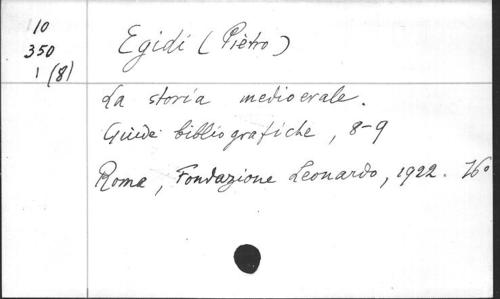 10
350
1 (8)
Egidi (Pietro)
La storia medioevale.
Guide bibliografiche, 8-9
Roma, Fondazione Leonardo, 1922. 16°